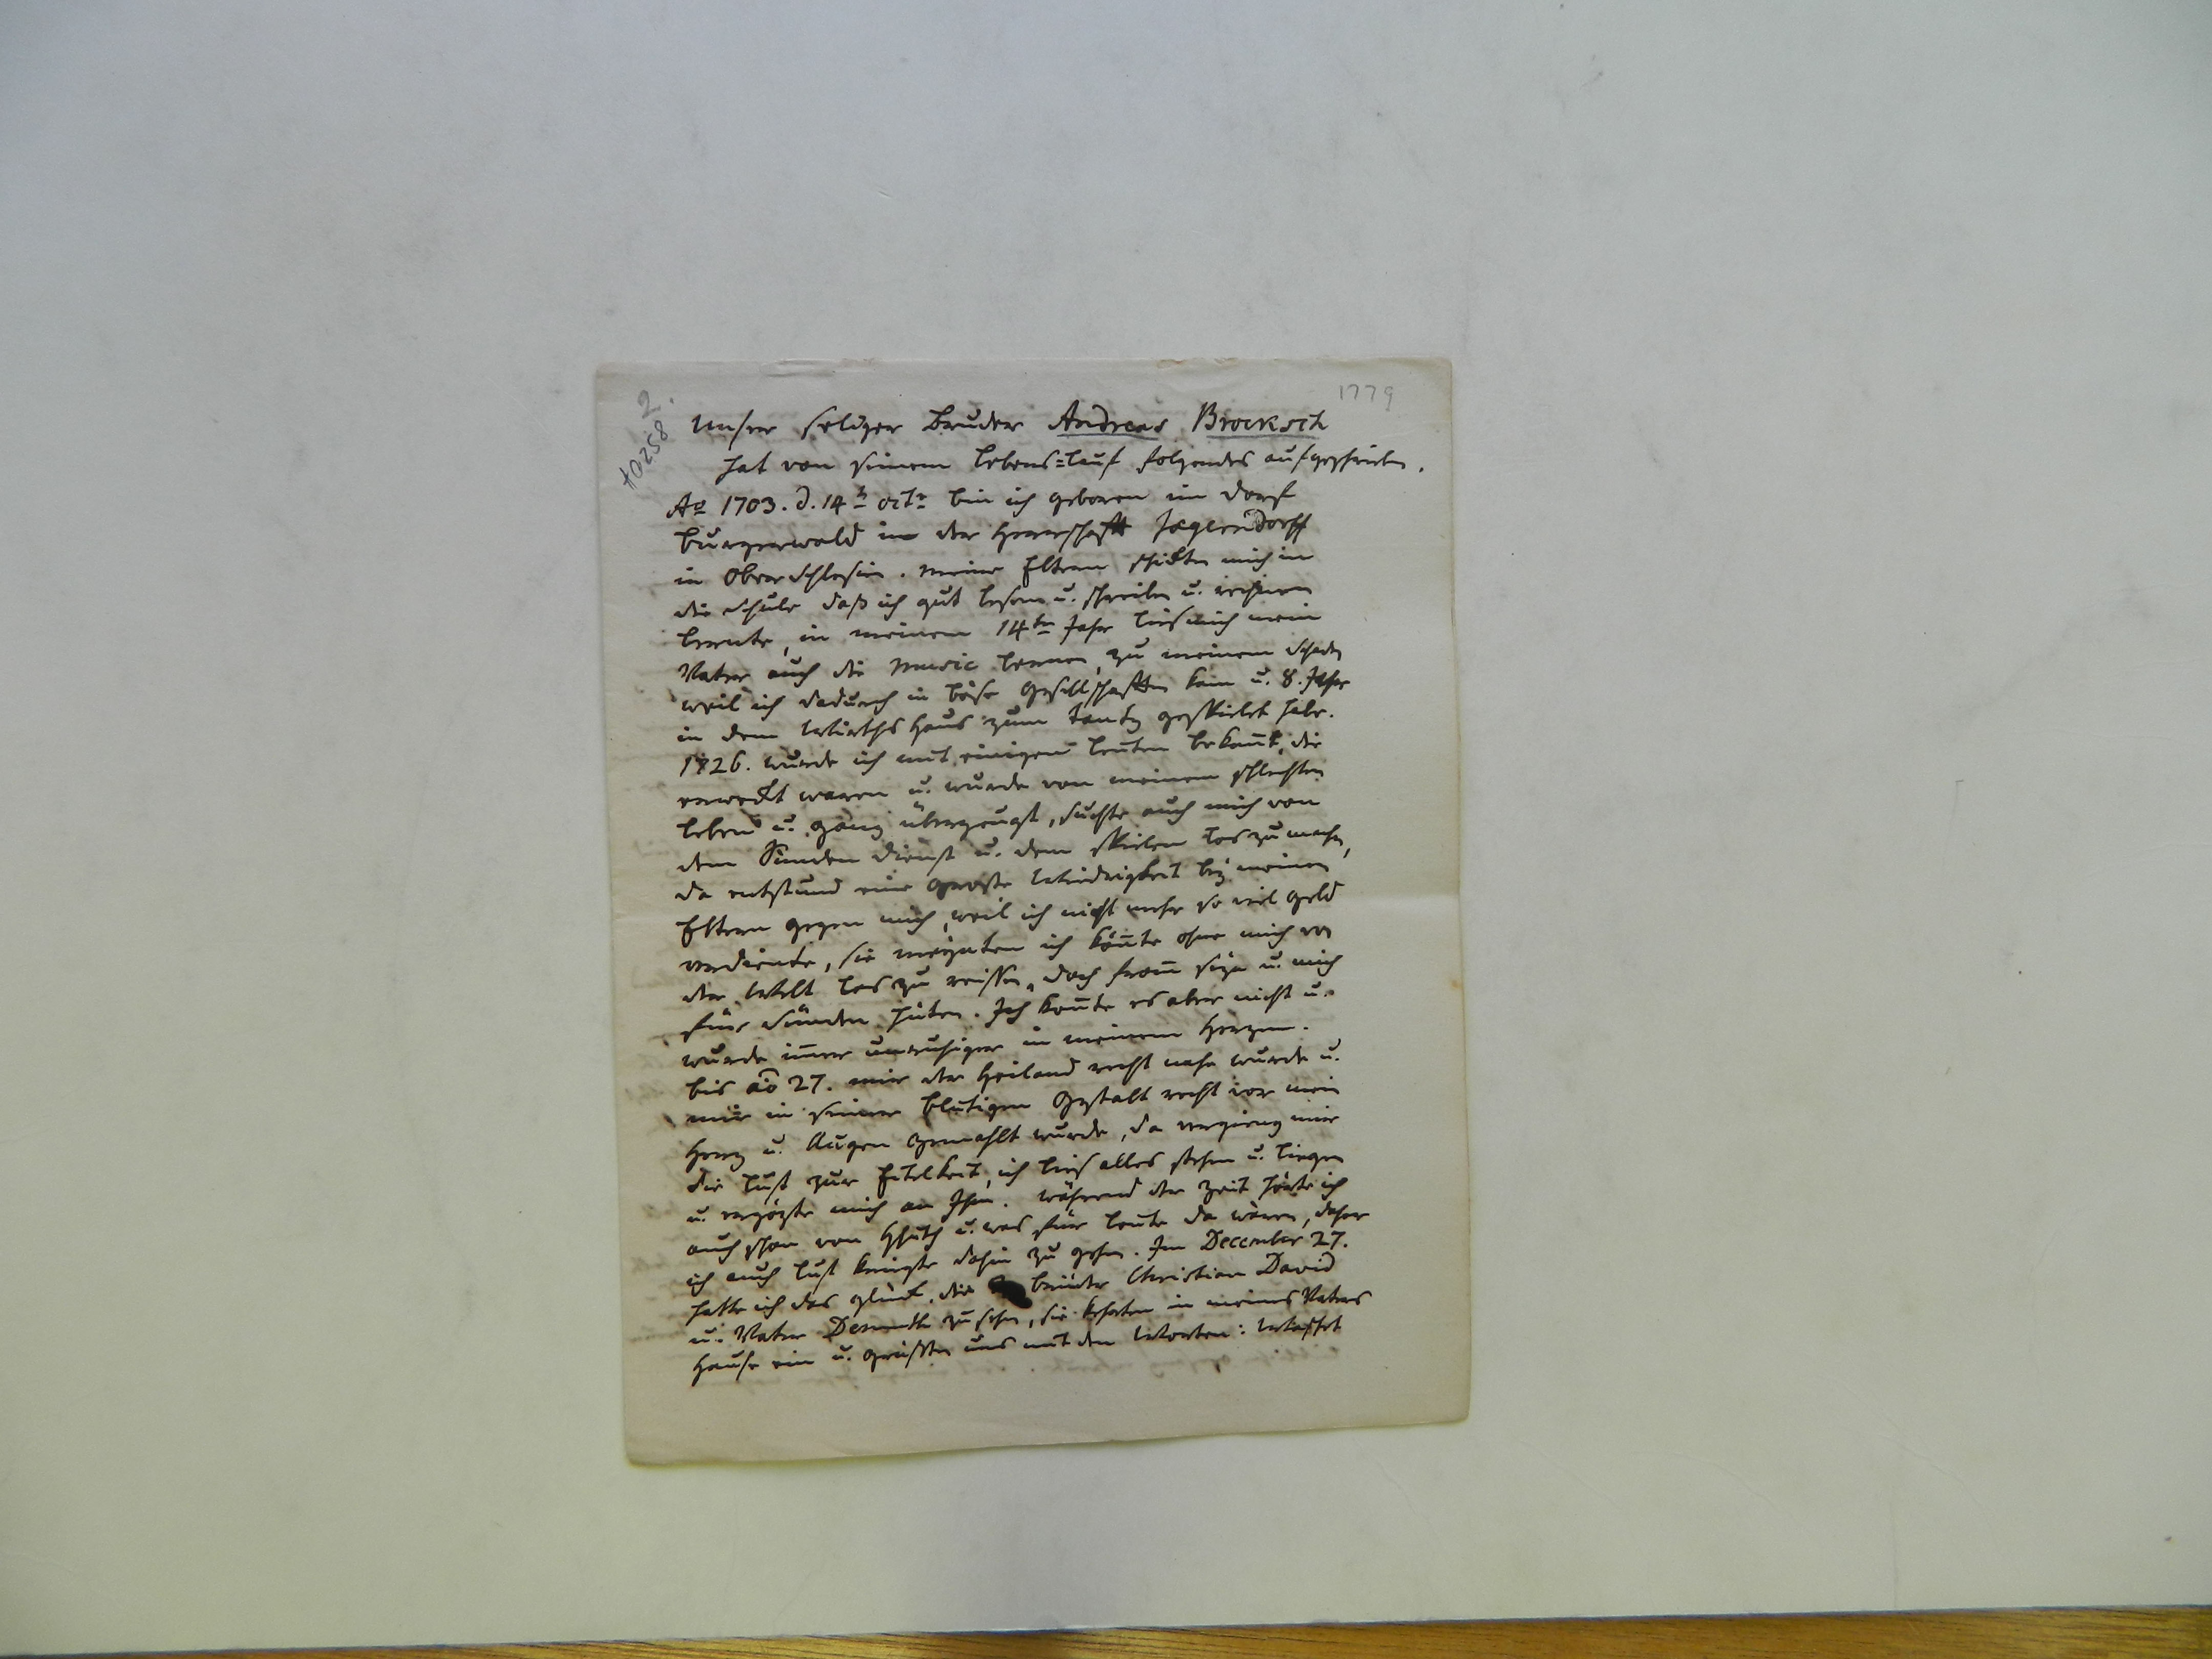 2.
H0258
1779
Unser seliger Bruder Andreas Brocksch
hat von seinem Lebens=lauf folgendes aufgeschrieben.
Ao 1703. d. 14t octr bin ich geboren im Dorf
Burgerwald in der Herrschafft Jægerndorff
in Oberschlesien. Meine Eltern schickten mich in
die Schule daß ich gut lesen u. schreiben u. rechnen
lernte, in meinem 14ten Jahr lies mich mein
Vater auch die Music lernen, zu meinem Schaden
weil ich dadurch in böse Gesellschafften kam u. 8. Jahr
in dem Wirthshaus zum tantz gespielet habe.
1726. wurde ich mit einigen leuten bekant, die
erweckt waren u. wurde von meinem schlechten
leben u. gang überzeugt, suchte auch mich von
dem Sünden dienst u. dem spielen los zu machen,
da entstund eine grosse Wiedrigkeit bey meinen
Eltern gegen mich, weil ich nicht mehr so viel geld
verdiente, sie meynten ich könte ohne mich von
der Welt los zu reissen, doch from seyn u. mich
für Sünden hüten. Ich konte es aber nicht u.
wurde imer unruhiger in meinem Herzen.
bis ao 27. mir der Heiland recht nahe wurde u.
mir in seiner blutigen Gestalt recht vor mein
Herz u. Augen gemahlt wurde, da vergieng mir
die lust zur Eitelkeit, ich lies alles stehen u. liegen
u. ergözte mich an Ihm. während der Zeit hörte ich
auch schon von Hhuth u. was für leute da wären, daher
ich auch lust kriegte dahin zu gehen. Im December 27.
hatte ich das glück, die brüder Christian David
u. Vater Demuth zu sehen, sie kehrten in meines Vaters
Hause ein u. grüßten uns mit den Worten: Wachet